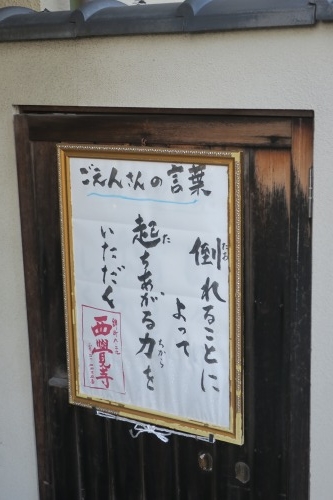 ごえんさんの言葉
倒れることに
よって
起ちあがる力を
いただく
西覺寺